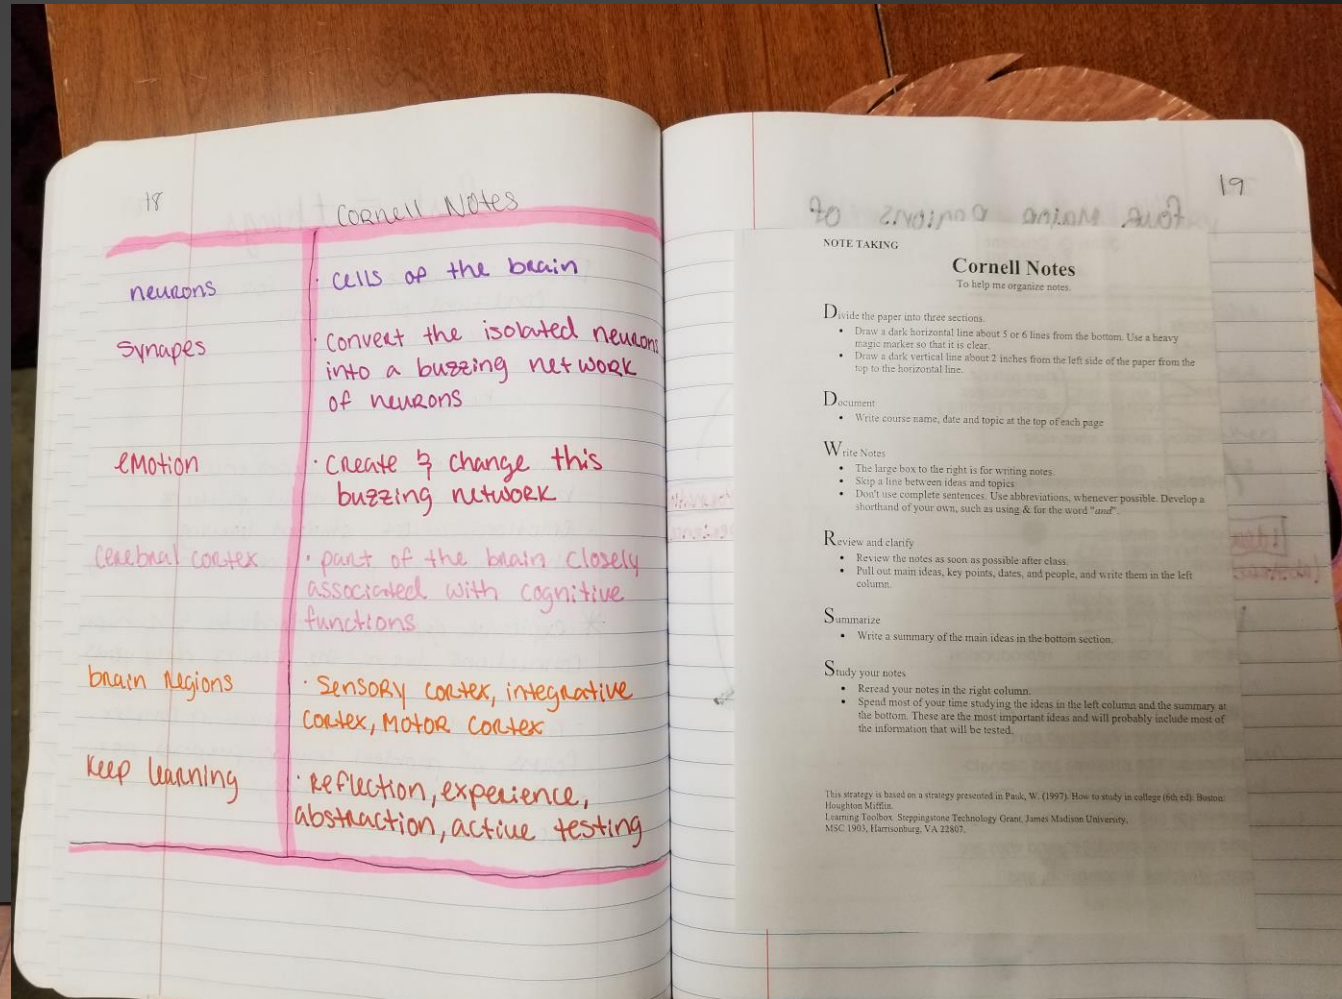 18
Cornell Notes
neurons
· cells of the brain
synapes
· Convert the isolated neurons
into a buzzing network
of neurons
emotion
· Create & change this
buzzing network
cerebral cortex
· part of the brain closely
associated with cognitive
functions
brain regions
· Sensory cortex, integrative
cortex, Motor cortex
Keep learning
· Reflection, experience,
abstraction, active testing
19
NOTE TAKING
Cornell Notes
To help me organize notes.
Divide the paper into three sections.
• Draw a dark horizontal line about 5 or 6 lines from the bottom. Use a heavy
magic marker so that it is clear.
• Draw a dark vertical line about 2 inches from the left side of the paper from the
top to the horizontal line.
Document
• Write course name, date and topic at the top of each page
Write Notes
• The large box to the right is for writing notes.
• Skip a line between ideas and topics
• Don't use complete sentences. Use abbreviations, whenever possible. Develop a
shorthand of your own, such as using & for the word "and".
Review and clarify
• Review the notes as soon as possible after class.
• Pull out main ideas, key points, dates, and people, and write them in the left
column.
Summarize
• Write a summary of the main ideas in the bottom section.
Study your notes
• Reread your notes in the right column.
• Spend most of your time studying the ideas in the left column and the summary at
the bottom. These are the most important ideas and will probably include most of
the information that will be tested.
This strategy is based on a strategy presented in Pauk, W. (1997). How to study in college (6th ed). Boston:
Houghton Mifflin.
Learning Toolbox. Steppingstone Technology Grant, James Madison University,
MSC 1903, Harrisonburg, VA 22807.